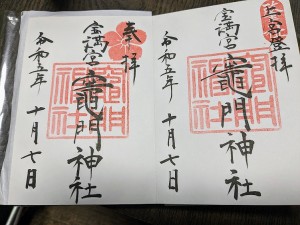 上宮登拝
宝満宮
竈門神社
令和五年 十月七日
奉拝
宝満宮
竈門神社
令和五年 十月七日